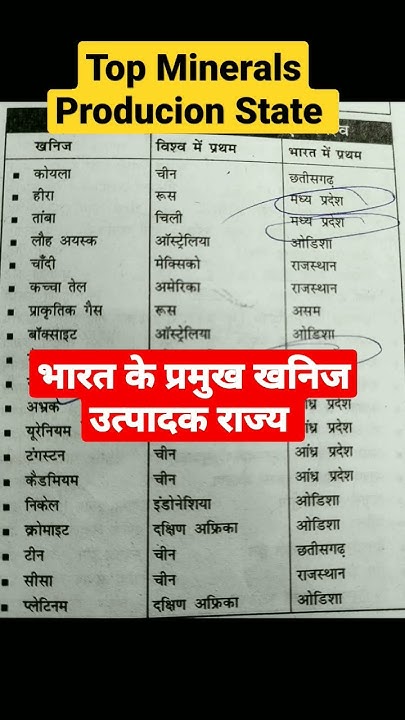 Top Minerals
Producion State
खनिज विश्व में प्रथम भारत में प्रथम
कोयला चीन छतीसगढ़
हीरा रूस मध्य प्रदेश
तांबा चिली मध्य प्रदेश
लौह अयस्क ऑस्ट्रेलिया ओडिशा
चाँदी मेक्सिको राजस्थान
कच्चा तेल अमेरिका राजस्थान
प्राकृतिक गैस रूस असम
बॉक्साइट ऑस्ट्रेलिया ओडिशा
भारत के प्रमुख खनिज
उत्पादक राज्य
अभ्रक प्रदेश
यूरेनियम प्रदेश
टंगस्टन चीन आंध्र प्रदेश
कैडमियम चीन आंध्र प्रदेश
निकेल इंडोनेशिया ओडिशा
क्रोमाइट दक्षिण अफ्रिका ओडिशा
टीन चीन छतीसगढ़
सीसा चीन राजस्थान
प्लेटिनम दक्षिण अफ्रिका ओडिशा